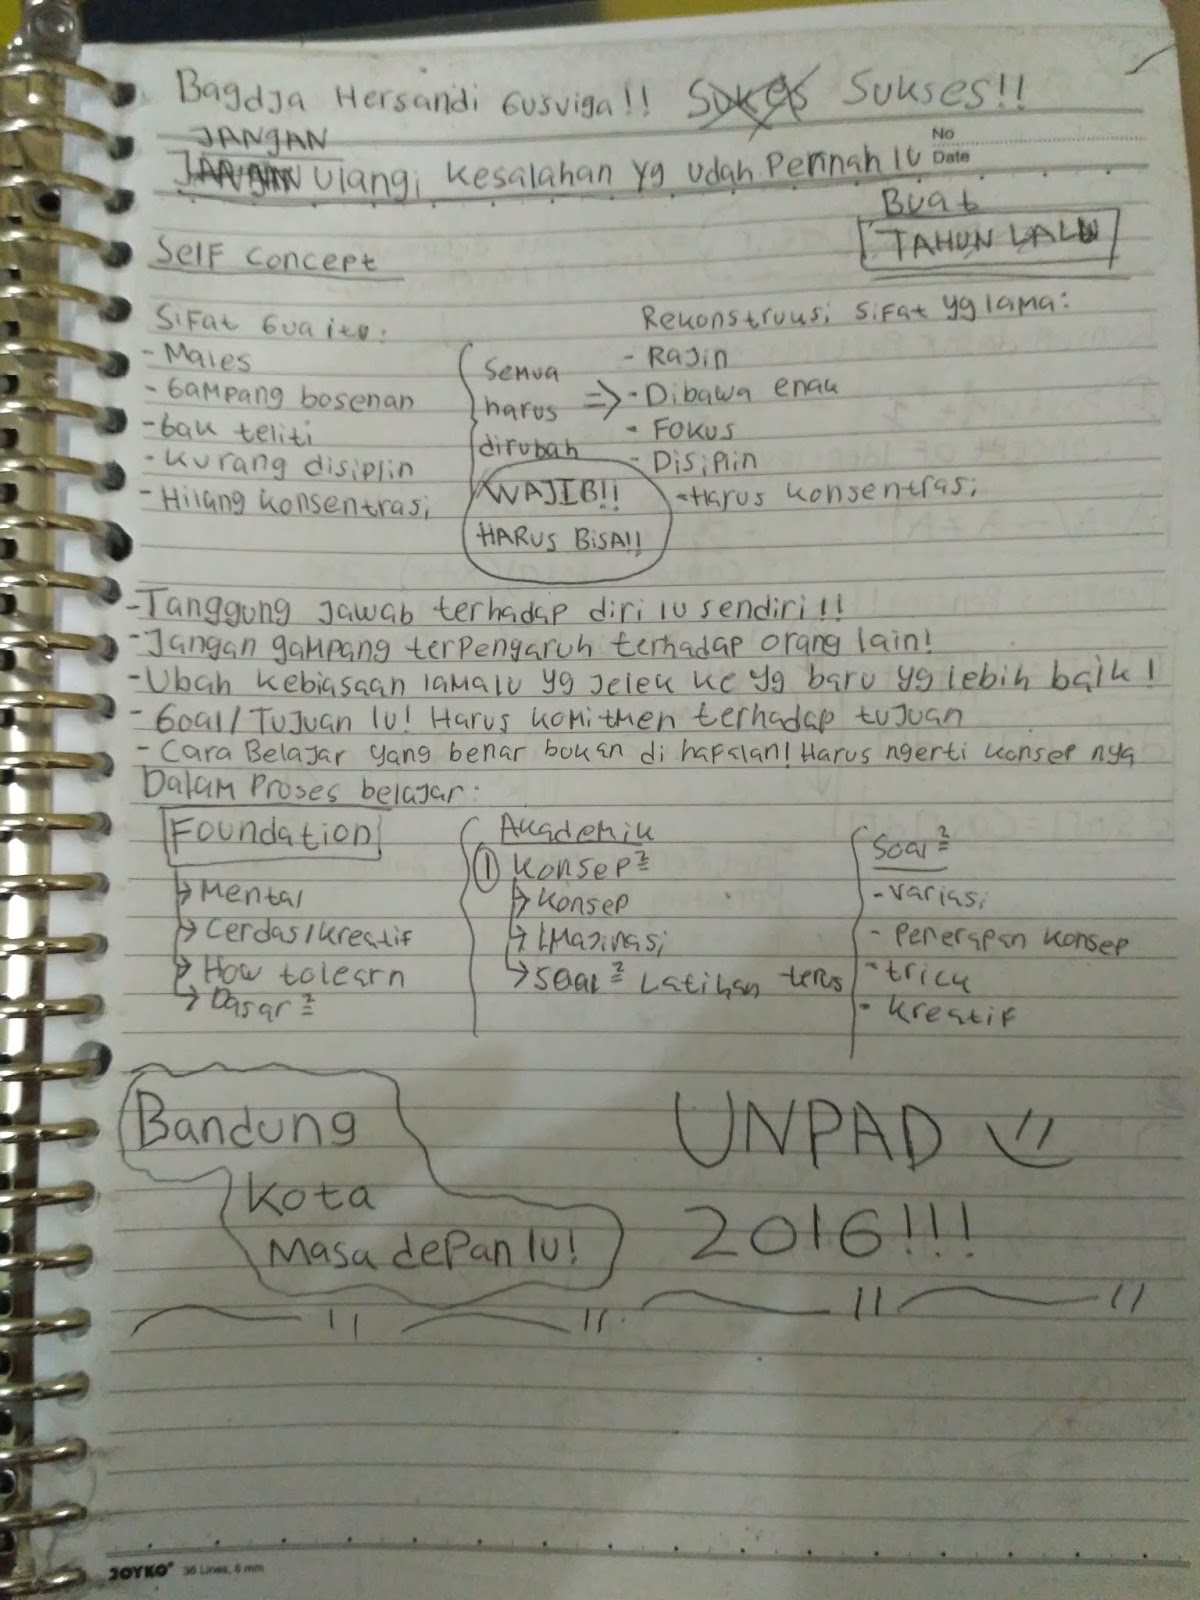 Bagdja Hersandi Gusviga!! Sukses Sukses!!
No
JANGAN
JANGAN Ulangi Kesalahan yg udah Pernah lu
Date
Buat
TAHUN LALU
Self Concept
Sifat Gua itu:
- Males
- Gampang bosenan
- Gak teliti
- Kurang disiplin
- Hilang konsentrasi
Semua
harus =>
dirubah
WAJIB!!
HARUS BISA!!
Rekonstruksi sifat yg lama:
- Rajin
- Dibawa enak
- Fokus
- Disiplin
- Harus konsentrasi
- Tanggung jawab terhadap diri lu sendiri!!
- Jangan gampang terpengaruh terhadap orang lain!
- Ubah kebiasaan lama lu yg jelek ke yg baru yg lebih baik!
- Goal/Tujuan lu! Harus komitmen terhadap tujuan
- Cara Belajar yang benar bukan di hafalan! Harus ngerti konsep nya
Dalam Proses belajar:
Foundation
→ Mental
→ Cerdas/kreatif
→ How to learn
→ Dasar²
Akademik
① Konsep²
→ Konsep
→ Imajinasi
→ Soal² Latihan terus
Soal²
- Variasi
- Penerapan Konsep
- trick
- kreatif
Bandung
Kota
Masa depan lu!
UNPAD
2016!!!
JOYKO® 36 Lines, 8 mm